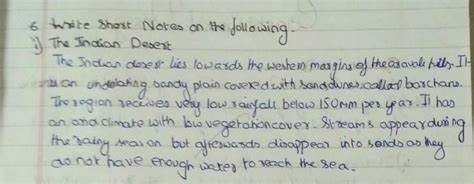 6 Write Short Notes on the following.
i) The Indian Desert
The Indian desert lies towards the western margins of the aravali hills. It
is an undulating sandy plain covered with sand dunes called barchans.
The region receives very low rainfall below 150mm per year. It has
an arid climate with low vegetation cover. Streams appear during
the rainy season but afterwards disappear into sands as they
do not have enough water to reach the sea.